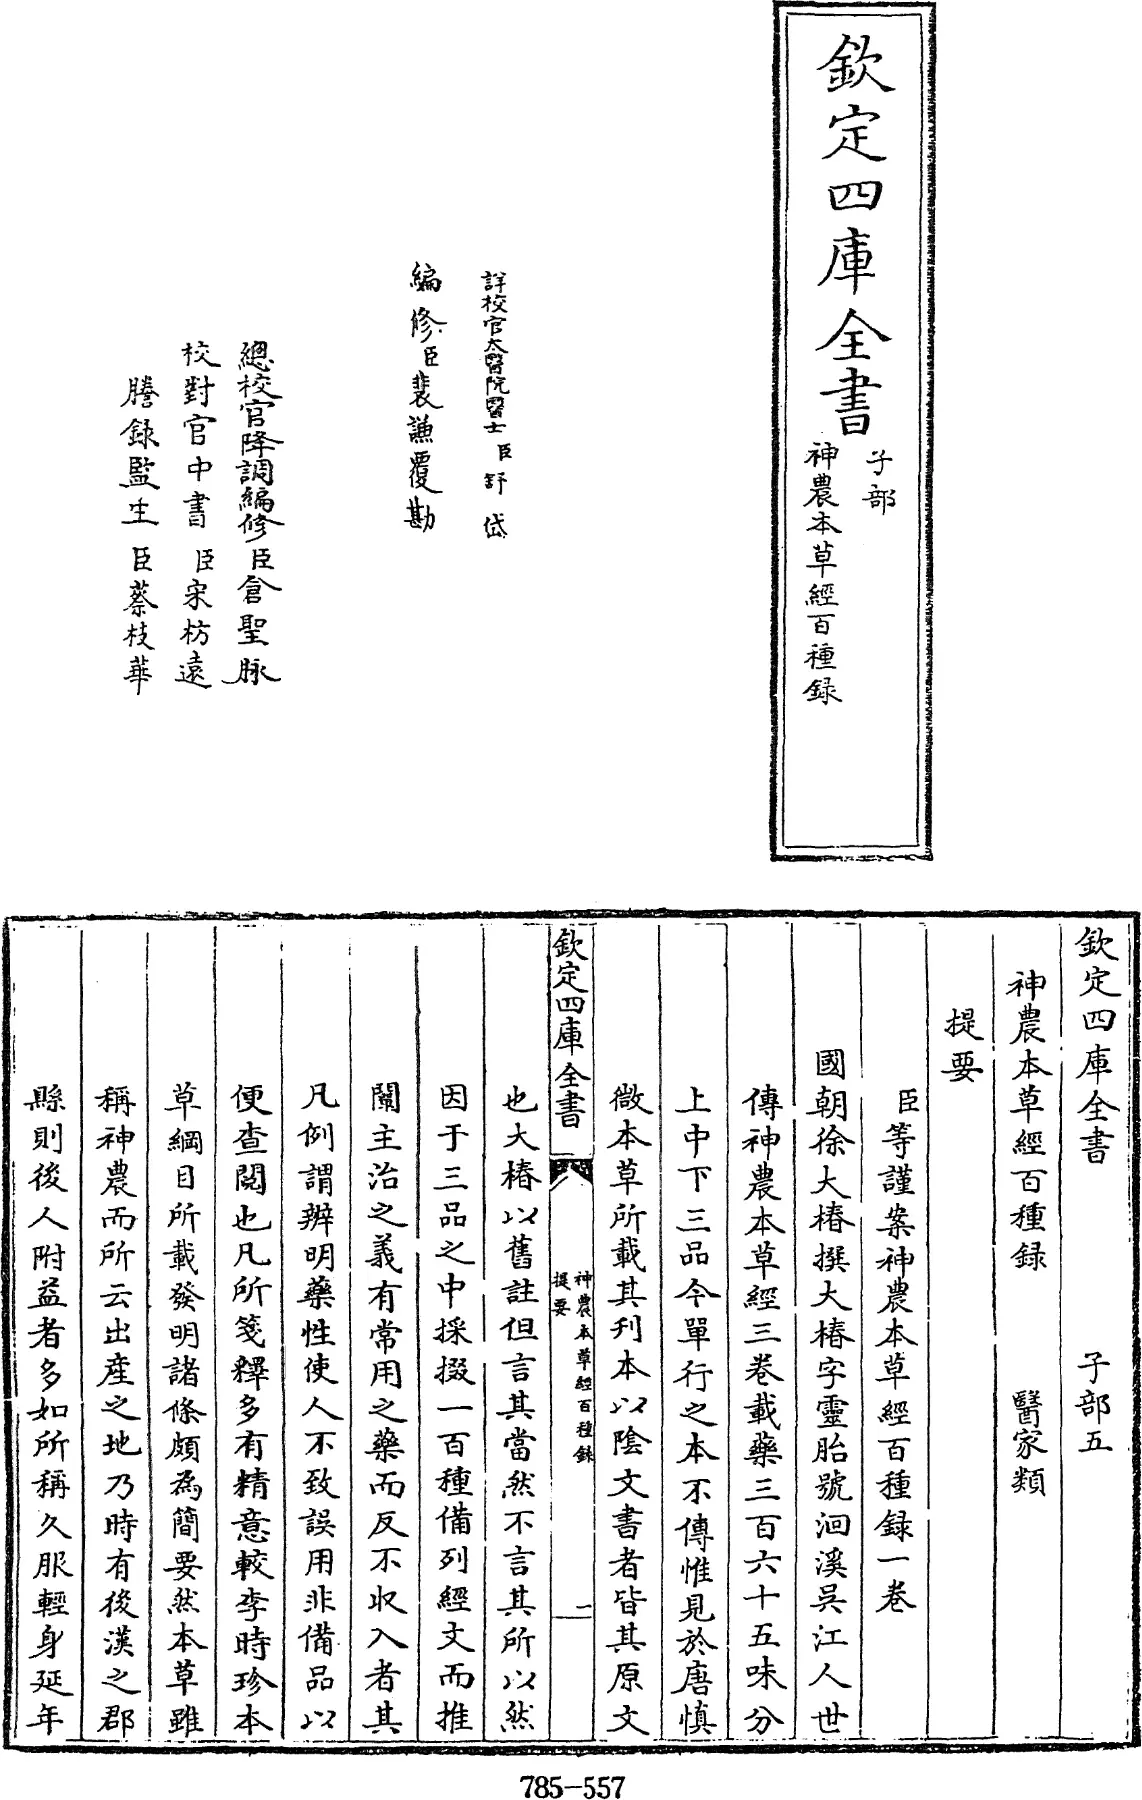 欽定四庫全書
子部
神農本草經百種録
詳校官太醫院醫士臣舒岱
編修臣裴謙覆勘
總校官降調編修臣倉聖脉
校對官中書臣宋枋遠
謄録監生臣蔡枝華
欽定四庫全書 子部五
神農本草經百種録 醫家類
提要
臣等謹案神農本草經百種録一卷
國朝徐大椿撰大椿字靈胎號洄溪吳江人世
傳神農本草經三卷載藥三百六十五味分
上中下三品今單行之本不傳惟見於唐慎
微本草所載其刋本以陰文書者皆其原文
欽定四庫全書
神農本草經百種録
提要
一
也大椿以舊註但言其當然不言其所以然
因于三品之中採掇一百種備列經文而推
闡主治之義有常用之藥而反不収入者其
凡例謂辨明藥性使人不致誤用非備品以
便查閲也凡所箋釋多有精意較李時珍本
草綱目所載發明諸條頗為簡要然本草雖
稱神農而所云出産之地乃時有後漢之郡
縣則後人附益者多如所稱久服輕身延年
785-557